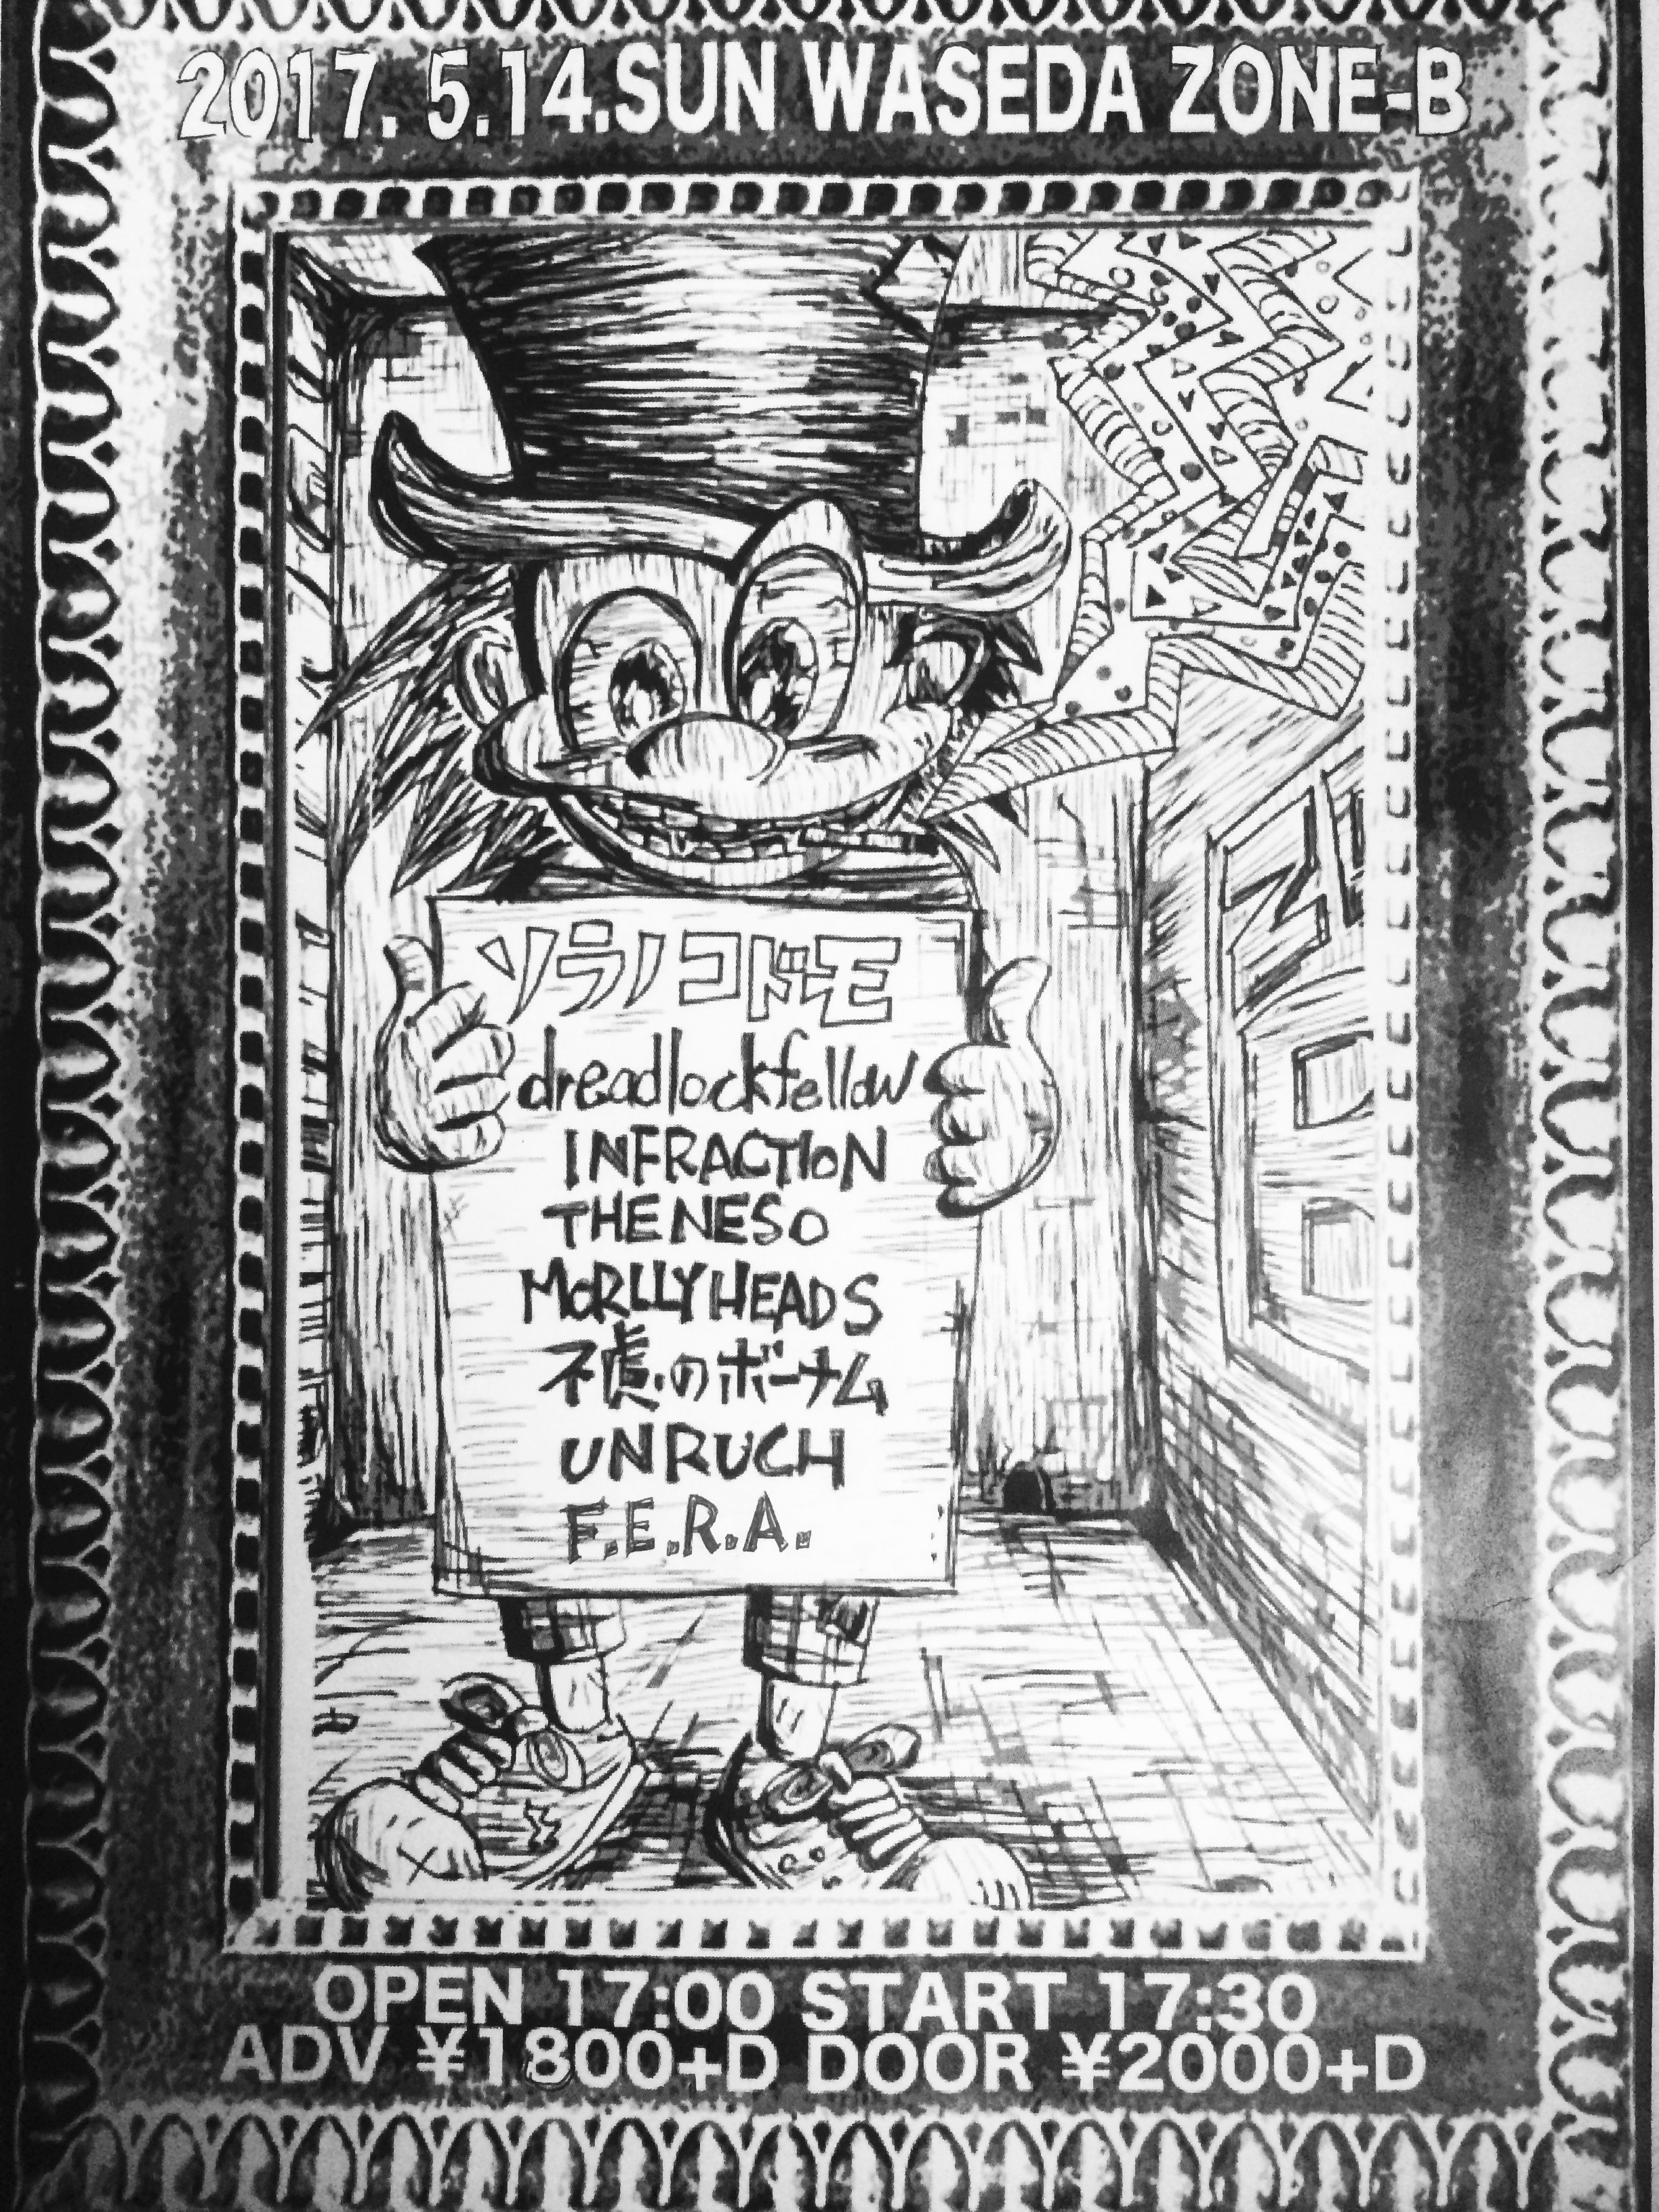 2017. 5.14.SUN WASEDA ZONE-B
ソラノコドモ
dreadlockfellow
INFRACTION
THENESO
MORLLYHEADS
のボーナム
UNRUCH
F.E.R.A.
OPEN 17:00 START 17:30
ADV ¥1800+D DOOR ¥2000+D